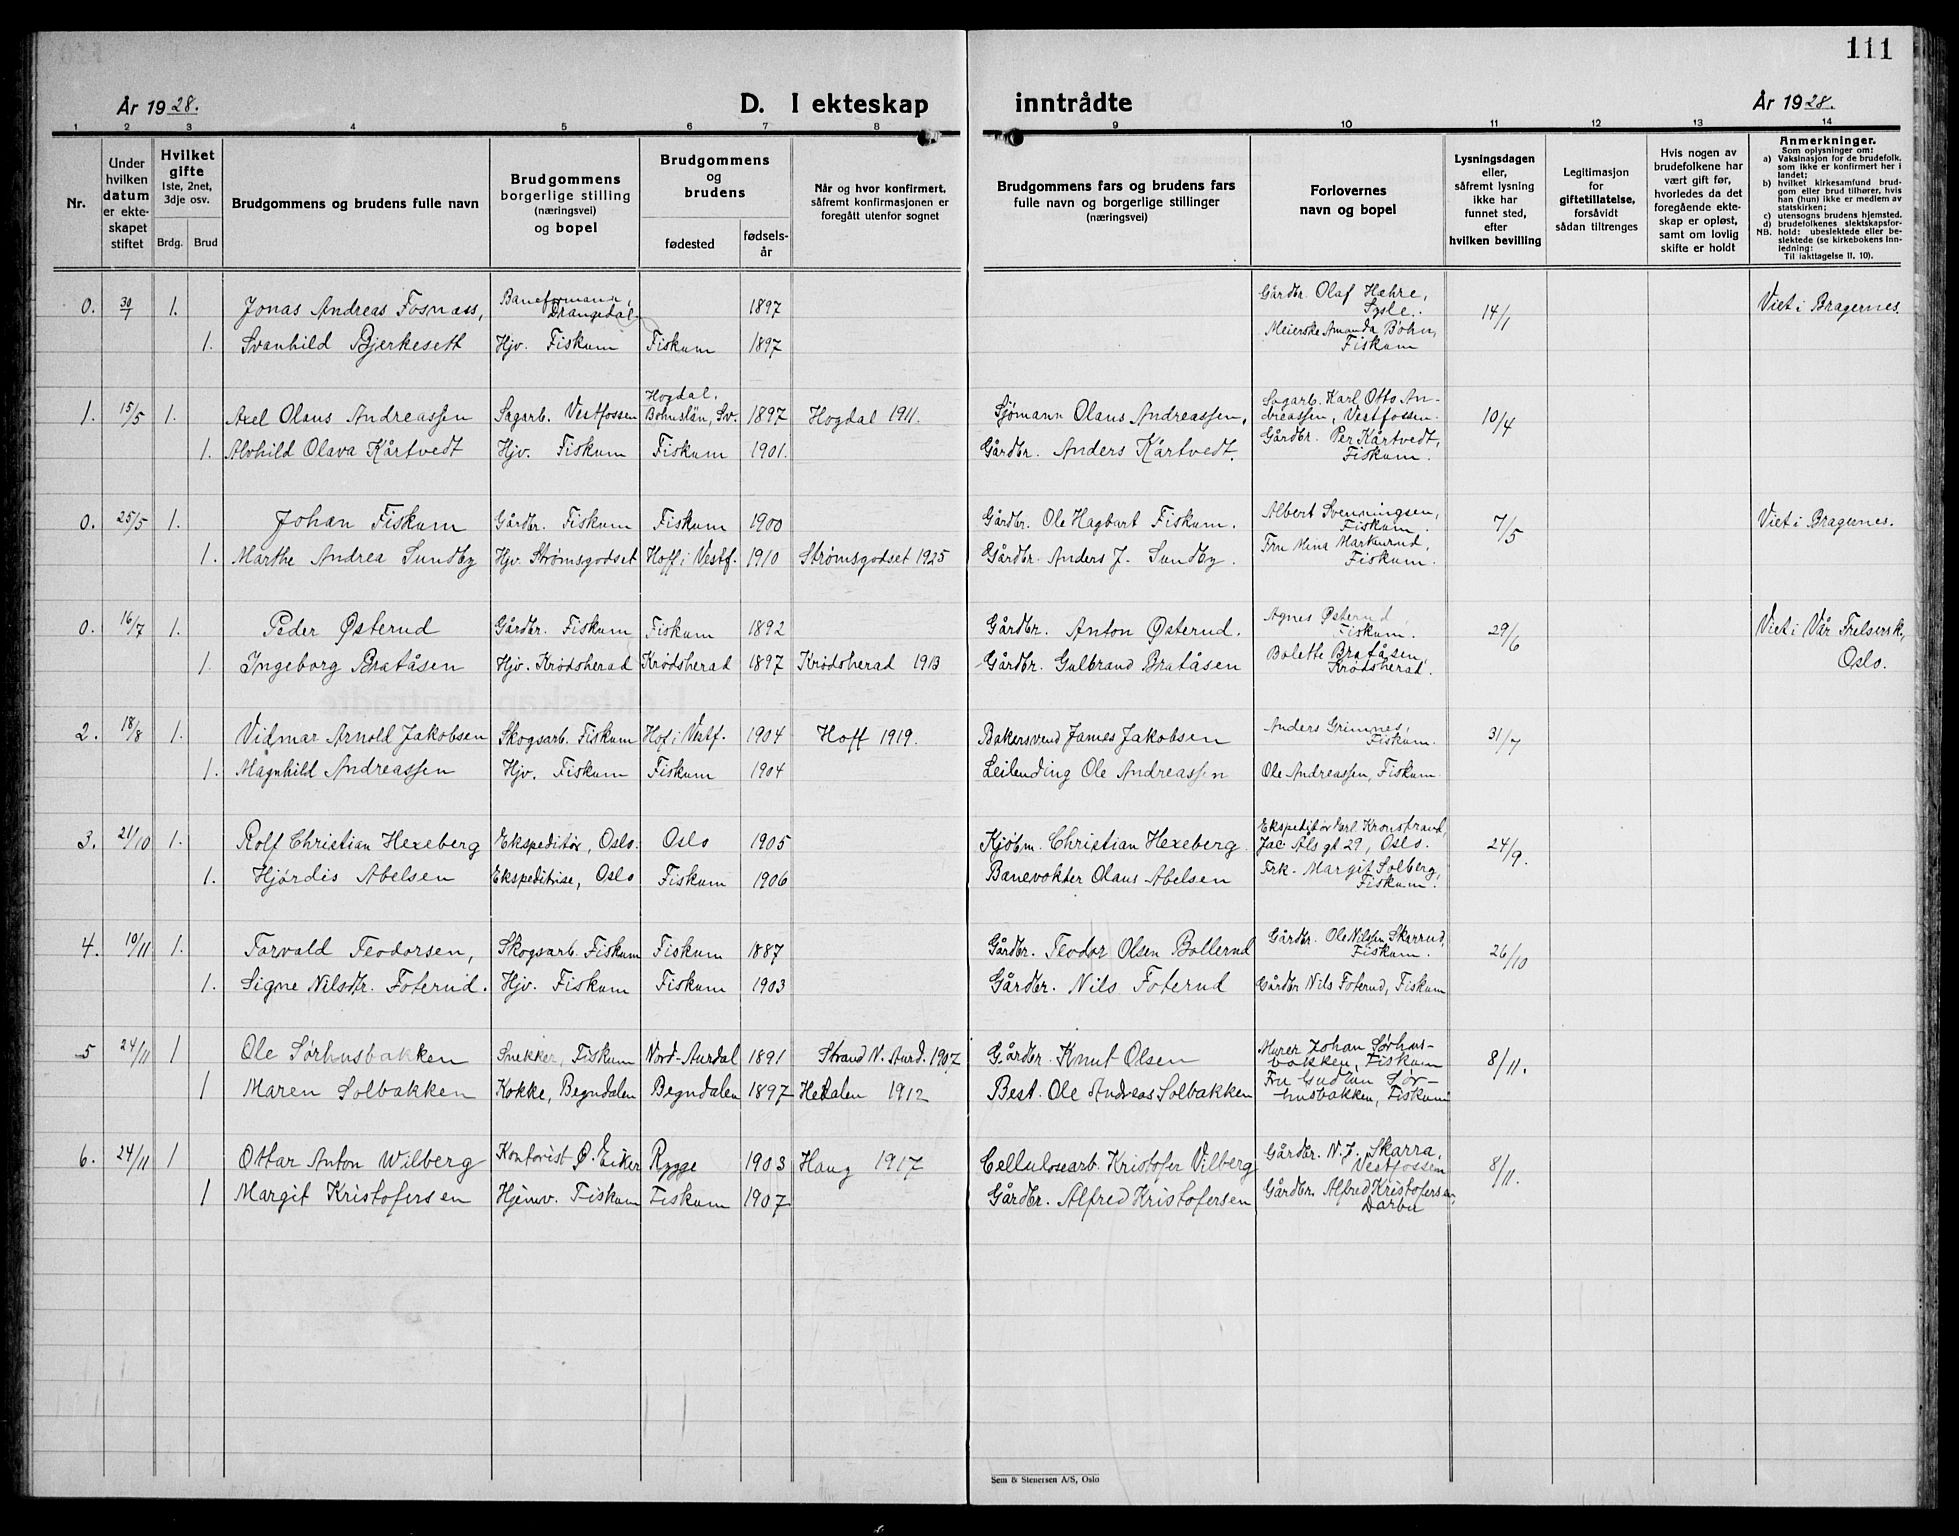 111
År 1928.
D. I ekteskap inntrådte
År 1928.
1 2 3 4 5 6 7 8 9 10 11 12 13 14
Nr.
Under hvilken datum er ekteskapet stiftet
Hvilket gifte
1ste, 2net, 3dje osv.
Brdg. Brud
Brudgommens og brudens fulle navn
Brudgommens borgerlige stilling (næringsvei) og bopel
Brudgommens og brudens
fødested
fødselsår
Når og hvor konfirmert, såfremt konfirmasjonen er foregått utenfor sognet
Brudgommens fars og brudens fars fulle navn og borgerlige stillinger (næringsvei)
Forlovernes navn og bopel
Lysningsdagen eller, såfremt lysning ikke har funnet sted, efter hvilken bevilling
Legitimasjon for giftetillatelse, forsåvidt sådan tiltrenges
Hvis nogen av brudefolkene har vært gift før, hvorledes da det foregående ekteskap er opløst, samt om lovlig skifte er holdt
Anmerkninger.
Som oplysninger om:
a) Vaksinasjon for de brudefolk, som ikke er konfirmert her i landet;
b) hvilket kirkesamfund brudgom eller brud tilhører, hvis han (hun) ikke er medlem av statskirken;
c) utensogns brudens hjemsted.
d) brudefolkenes slektskapsforhold: ubeslektede eller beslektede (se kirkebokens Innledning:
NB.
Til iakttagelse II. 10).
0. 30/1 1. Jonas Andreas Fosnæss, Baneformann, Drangedal 1897 Gårdbr. Olaf Hæhre, Sysle. 14/1 Viet i Bragernes.
1. Svanhild Bjerkesett Hjv. Fiskum Fiskum 1897 Meierske Amanda Bøhn, Fiskum
1. 15/5 1. Axel Olaus Andreassen Sagarb. Vestfossen Hogdal, Bohuslän, Sv. 1897 Hogdal 1911. Sjømann Olaus Andreassen, Sagarb. Karl Otto Andreassen, Vestfossen. 10/4
1. Alvhild Olava Kårtvedt Hjv. Fiskum Fiskum 1901. Gårdbr. Anders Kårtvedt. Gårdbr. Per Kårtvedt, Fiskum.
0. 25/5 1. Johan Fiskum Gårdbr. Fiskum Fiskum 1900 Gårdbr. Ole Hagbart Fiskum. Albert Svenningsen, Fiskum. 7/5 Viet i Bragernes.
1. Marthe Andrea Sundby Hjv. Strømsgodset Hoff i Vestf. 1910 Strømsgodset 1925 Gårdbr. Anders J. Sundby. Fru Mina Markerud, Fiskum.
0. 16/7 1. Peder Østerud Gårdbr. Fiskum Fiskum 1892 Gårdbr. Anton Østerud. Agnes Østerud, Fiskum. 29/6 Viet i Vår Frelsersk, Oslo.
1. Ingeborg Bratåsen Hjv. Krødsherad Krødsherad 1897 Krødsherad 1913 Gårdbr. Gulbrand Bratåsen Bolette Bratåsen, Krødsherad.
2. 18/8 1. Vidmar Arnold Jakobsen Skogsarb. Fiskum Hof i Vestf. 1904 Hoff 1919. Bakersvend James Jakobsen Anders Grimnes, Fiskum. 31/7
1. Magnhild Andreassen Hjv. Fiskum Fiskum 1904 Leilending Ole Andreassen Ole Andreassen, Fiskum.
3. 21/10 1. Rolf Christian Hexeberg Ekspeditør, Oslo. Oslo 1905 Kjøbm. Christian Hexeberg Ekspeditør Erl. Kronstrand, Jac Åls gt 29, Oslo. 24/9.
1. Hjørdis Abelsen Ekspeditrise, Oslo Fiskum 1906 Banevokter Olaus Abelsen Frk. Margit Solberg, Fiskum.
4. 10/11 1. Torvald Teodorsen, Skogsarb. Fiskum Fiskum 1887 Gårdbr. Teodor Olsen Bollerud Gårdbr. Ole Nilssen Skarrud, Fiskum. 26/10
1. Signe Nilsdtr. Foterud. Hjv. Fiskum Fiskum 1903 Gårdbr. Nils Foterud Gårdbr Nils Foterud, Fiskum
5 24/11 1 Ole Sørhusbakken Snekker, Fiskum Nord-Aurdal 1891 Strand N. Aurd. 1907 Gårdbr. Knut Olsen Murer Johan Sørhusbakken, Fiskum 8/11.
1 Maren Solbakken Kokke, Begndalen Begndalen 1897 Hedalen 1912 Best. Ole Andreas Solbakken Fru Gudrun Sørhusbakken, Fiskum
6. 24/11 1 Ottar Anton Wilberg Kontorist Ø. Eiker Rygge 1903 Haug 1917 Cellulosearb. Kristofer Vilberg Gårdbr. N. J. Skarra, Vestfossen 8/11.
1 Margit Kristofersen Hjemv. Fiskum Fiskum 1907 Gårdbr. Alfred Kristofersen Gårdbr. Alfred Kristofersen, Darbu
Sem & Stenersen A/S, Oslo